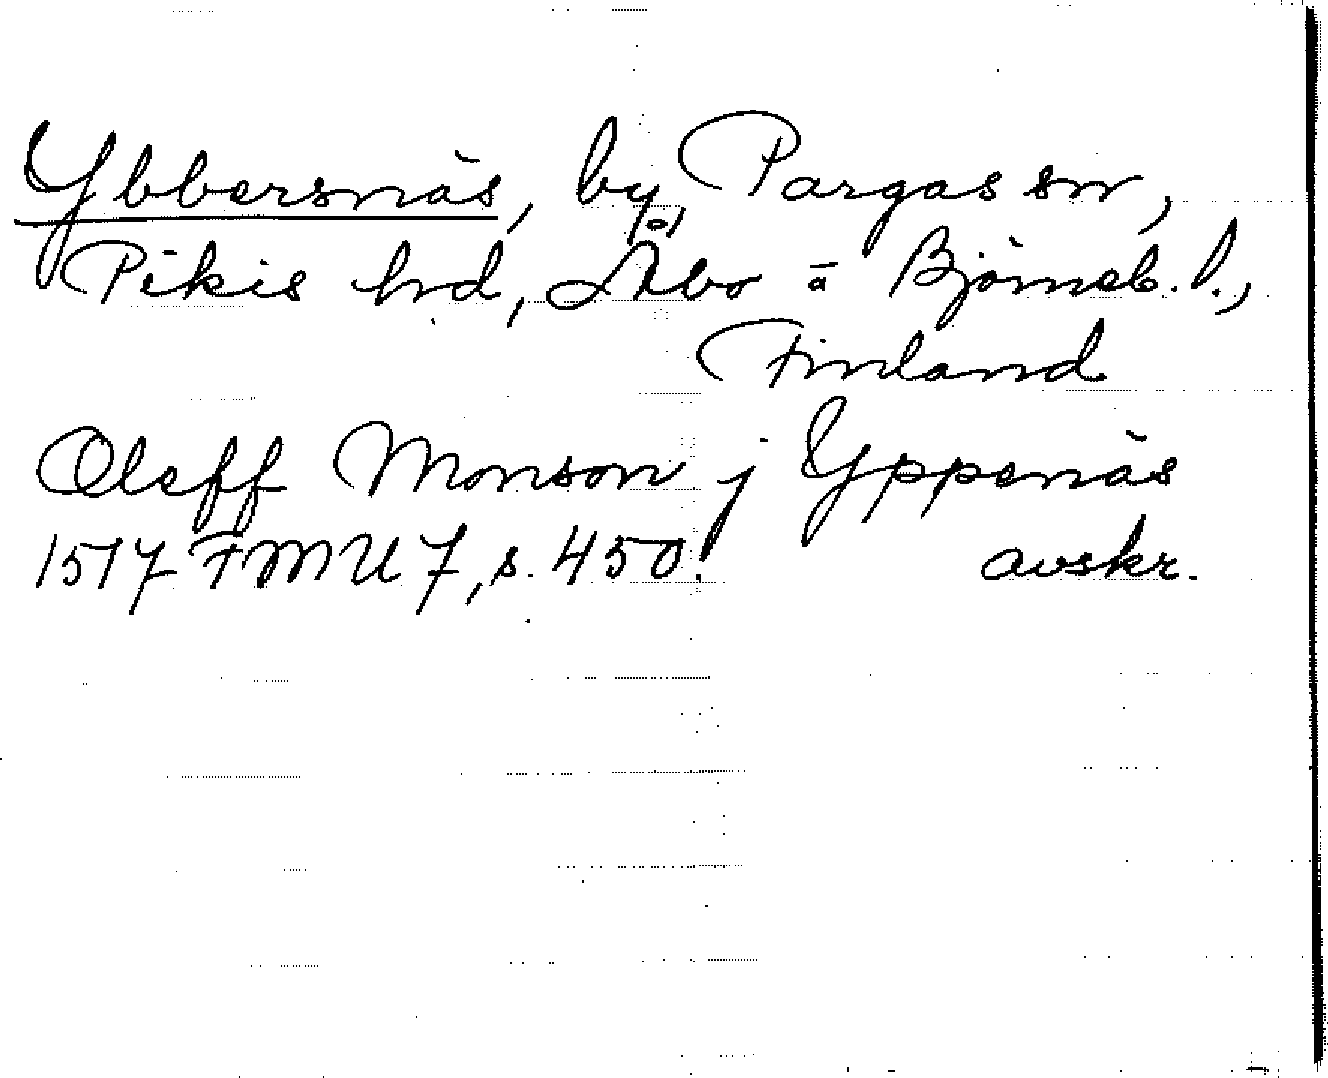 Ybbersnäs, by, Pargas sn,
Pikis hd, Åbo o Björneb. l.,
Finland
Oleff Monson j Yppenäs
1517 FMU 7, s. 450. avskr.